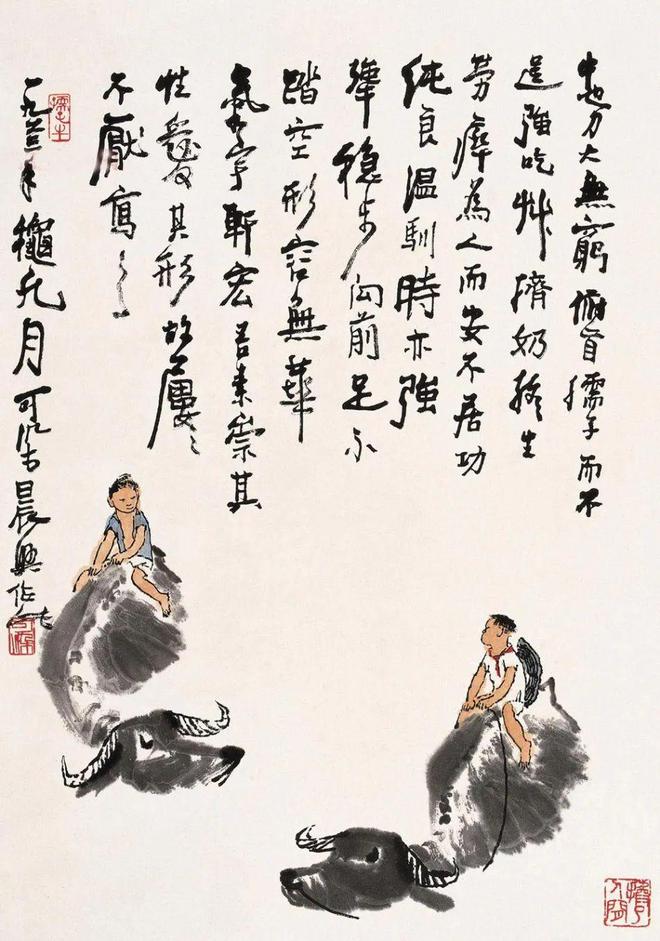 牛也力大無窮俯首孺子而不
逞強吃艸擠奶終生
勞瘁為人而安不居功
純良溫馴時亦強
犟穩步向前足不
踏空形容無華
氣宇軒宏吾素崇其
性愛其形故屢〻
不厭寫之
一九六年龝九月可染晨興作
可染